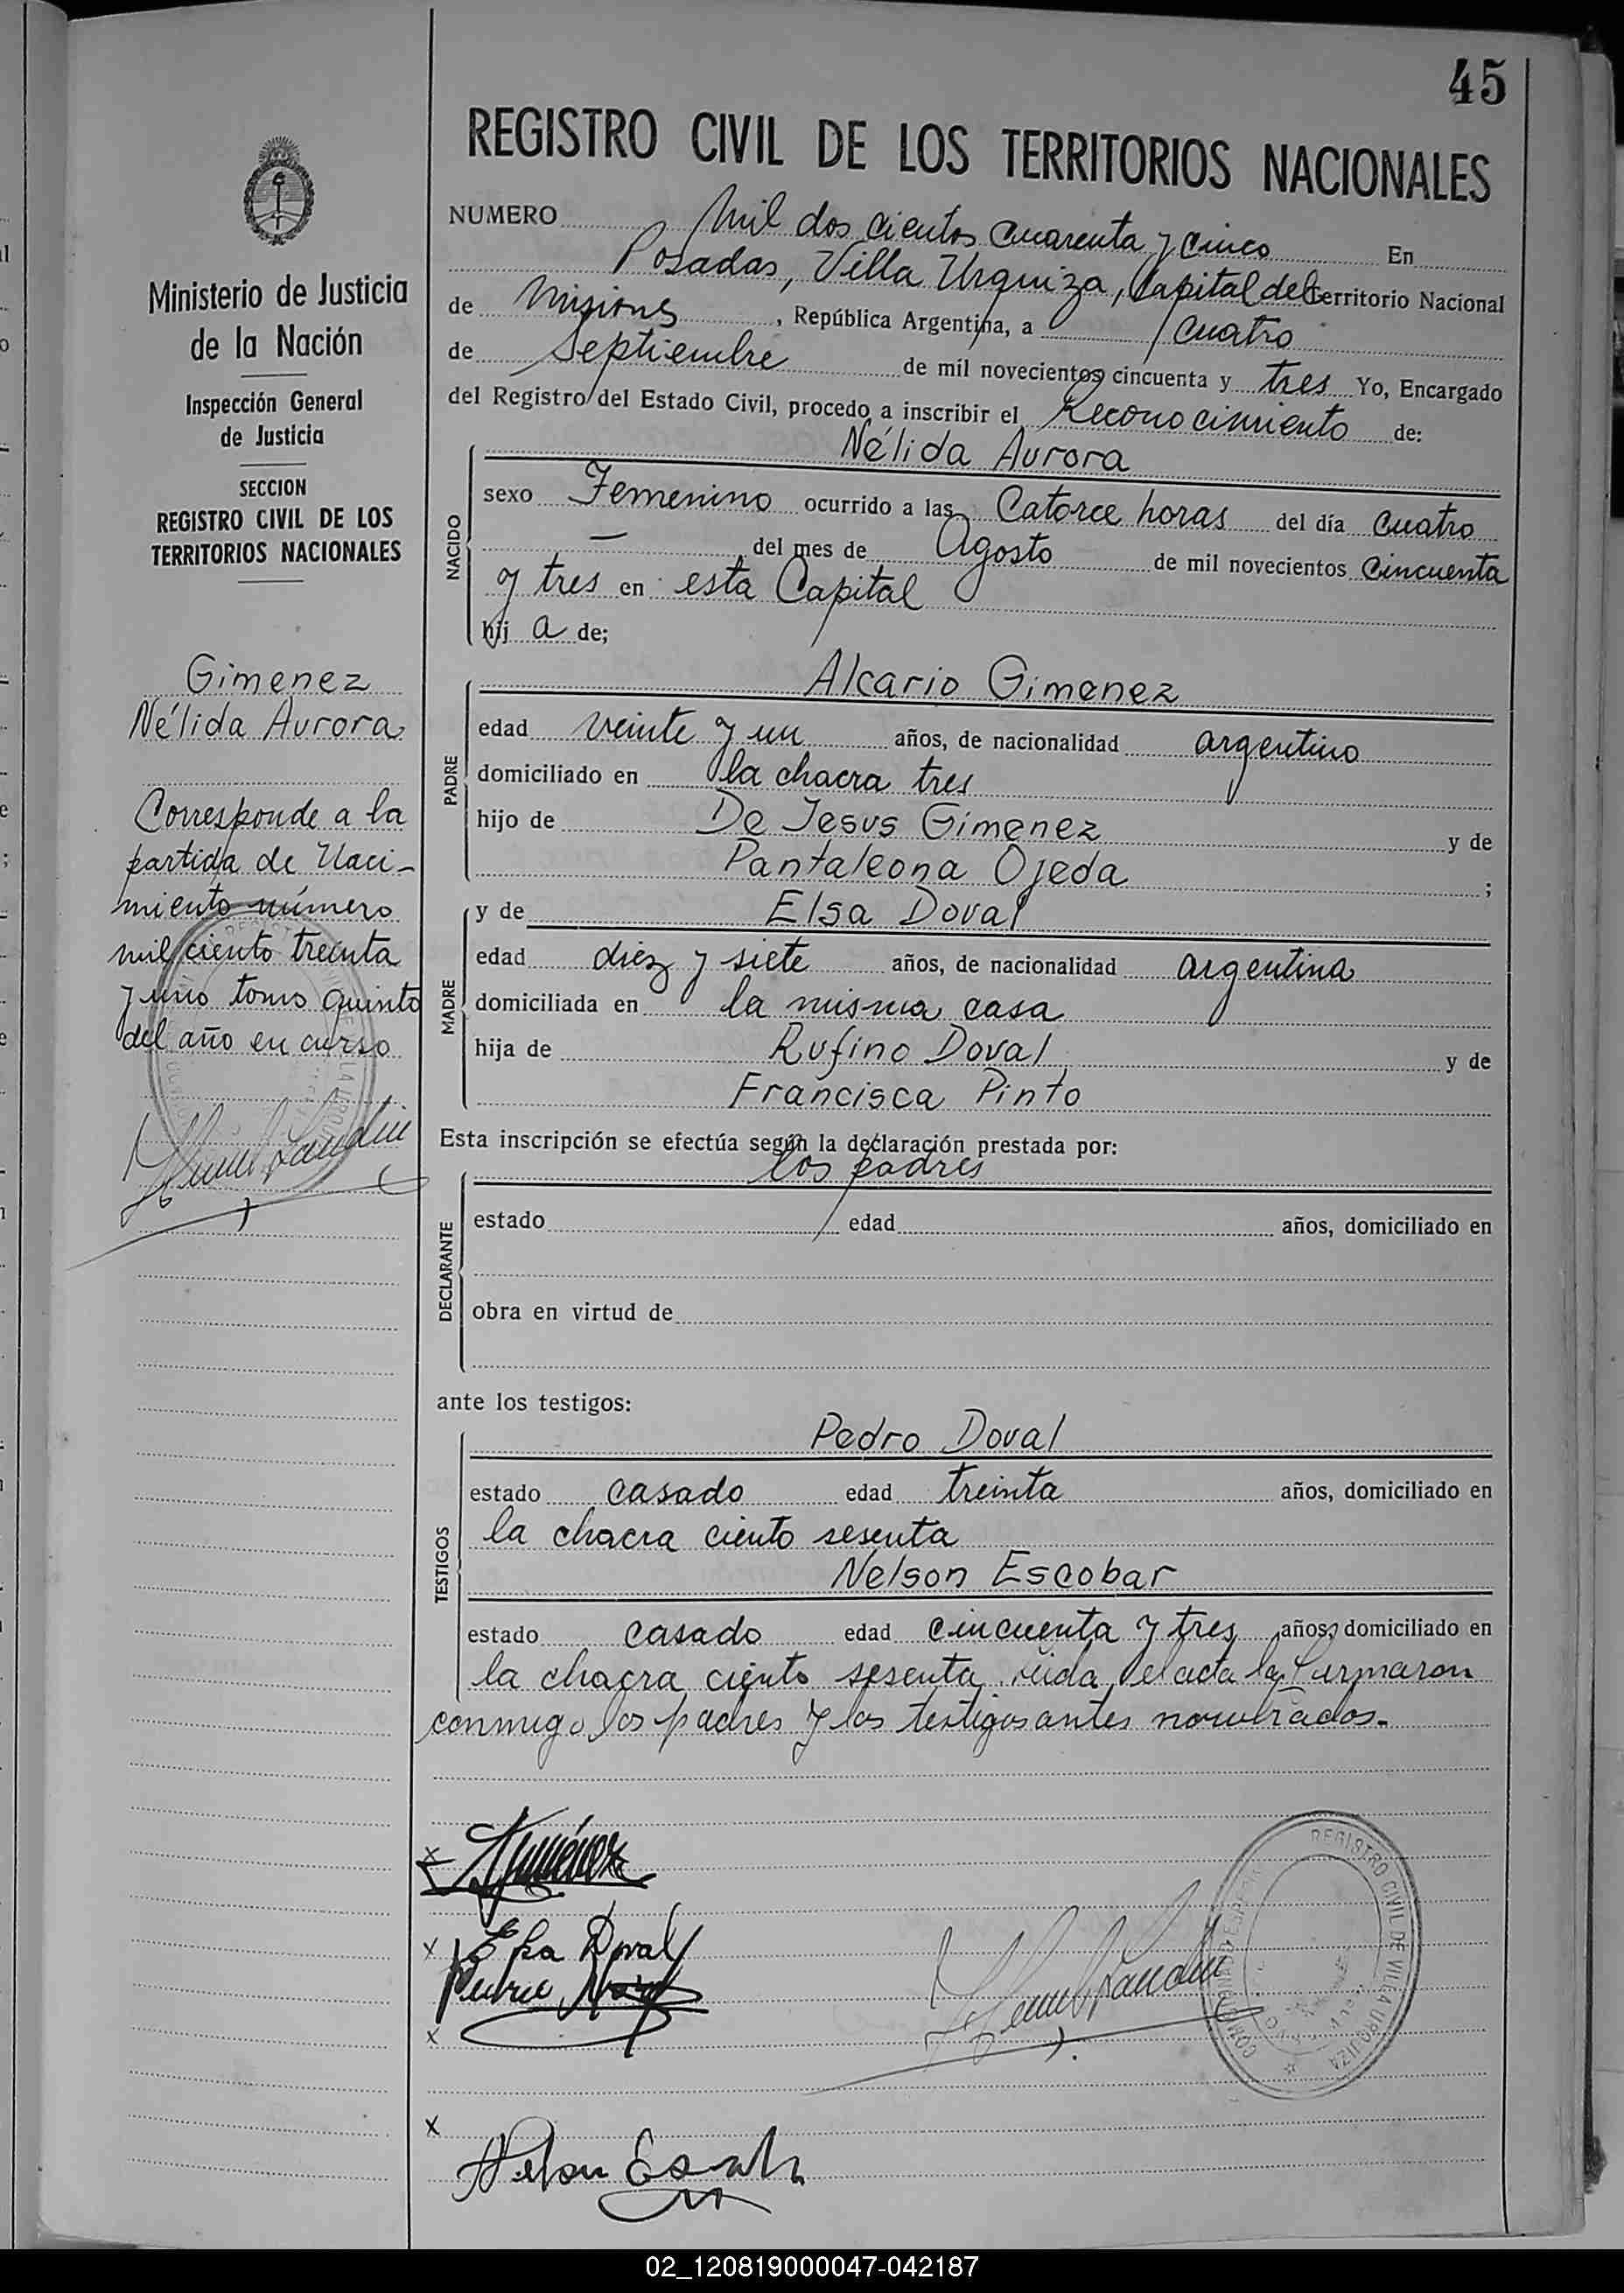 45
REGISTRO CIVIL DE LOS TERRITORIOS NACIONALES
Ministerio de Justicia
de la Nación
Inspección General
de Justicia
SECCION
REGISTRO CIVIL DE LOS
TERRITORIOS NACIONALES
Gimenez
Nélida Aurora
Corresponde a la
partida de Naci-
miento número
mil ciento treinta
y uno tomo quinto
del año en curso
NUMERO Mil dos cientos cuarenta y cinco En
Posadas, Villa Urquiza, Capital del territorio Nacional
de Misiones, República Argentina, a cuatro
de Septiembre de mil novecientos cincuenta y tres Yo, Encargado
del Registro del Estado Civil, procedo a inscribir el Reconocimiento de:
NACIDO
Nélida Aurora
sexo Femenino ocurrido a las Catorce horas del día cuatro
— del mes de Agosto de mil novecientos cincuenta
y tres en esta Capital
hij a de;
PADRE
Alcario Gimenez
edad veinte y un años, de nacionalidad argentino
domiciliado en la chacra tres
hijo de De Jesus Gimenez y de
Pantaleona Ojeda ;
MADRE
y de Elsa Doval
edad diez y siete años, de nacionalidad argentina
domiciliada en la misma casa
hija de Rufino Doval y de
Francisca Pinto
Esta inscripción se efectúa según la declaración prestada por:
DECLARANTE
los padres
estado edad años, domiciliado en
obra en virtud de
ante los testigos:
TESTIGOS
Pedro Doval
estado casado edad treinta años, domiciliado en
la chacra ciento sesenta
Nelson Escobar
estado casado edad cincuenta y tres años, domiciliado en
la chacra ciento sesenta. leida el acta la firmaron
conmigo los padres y los testigos antes nombrados.-
x
x Elsa Doval
x
x
REGISTRO CIVIL DE VILLA URQUIZA
02_120819000047-042187